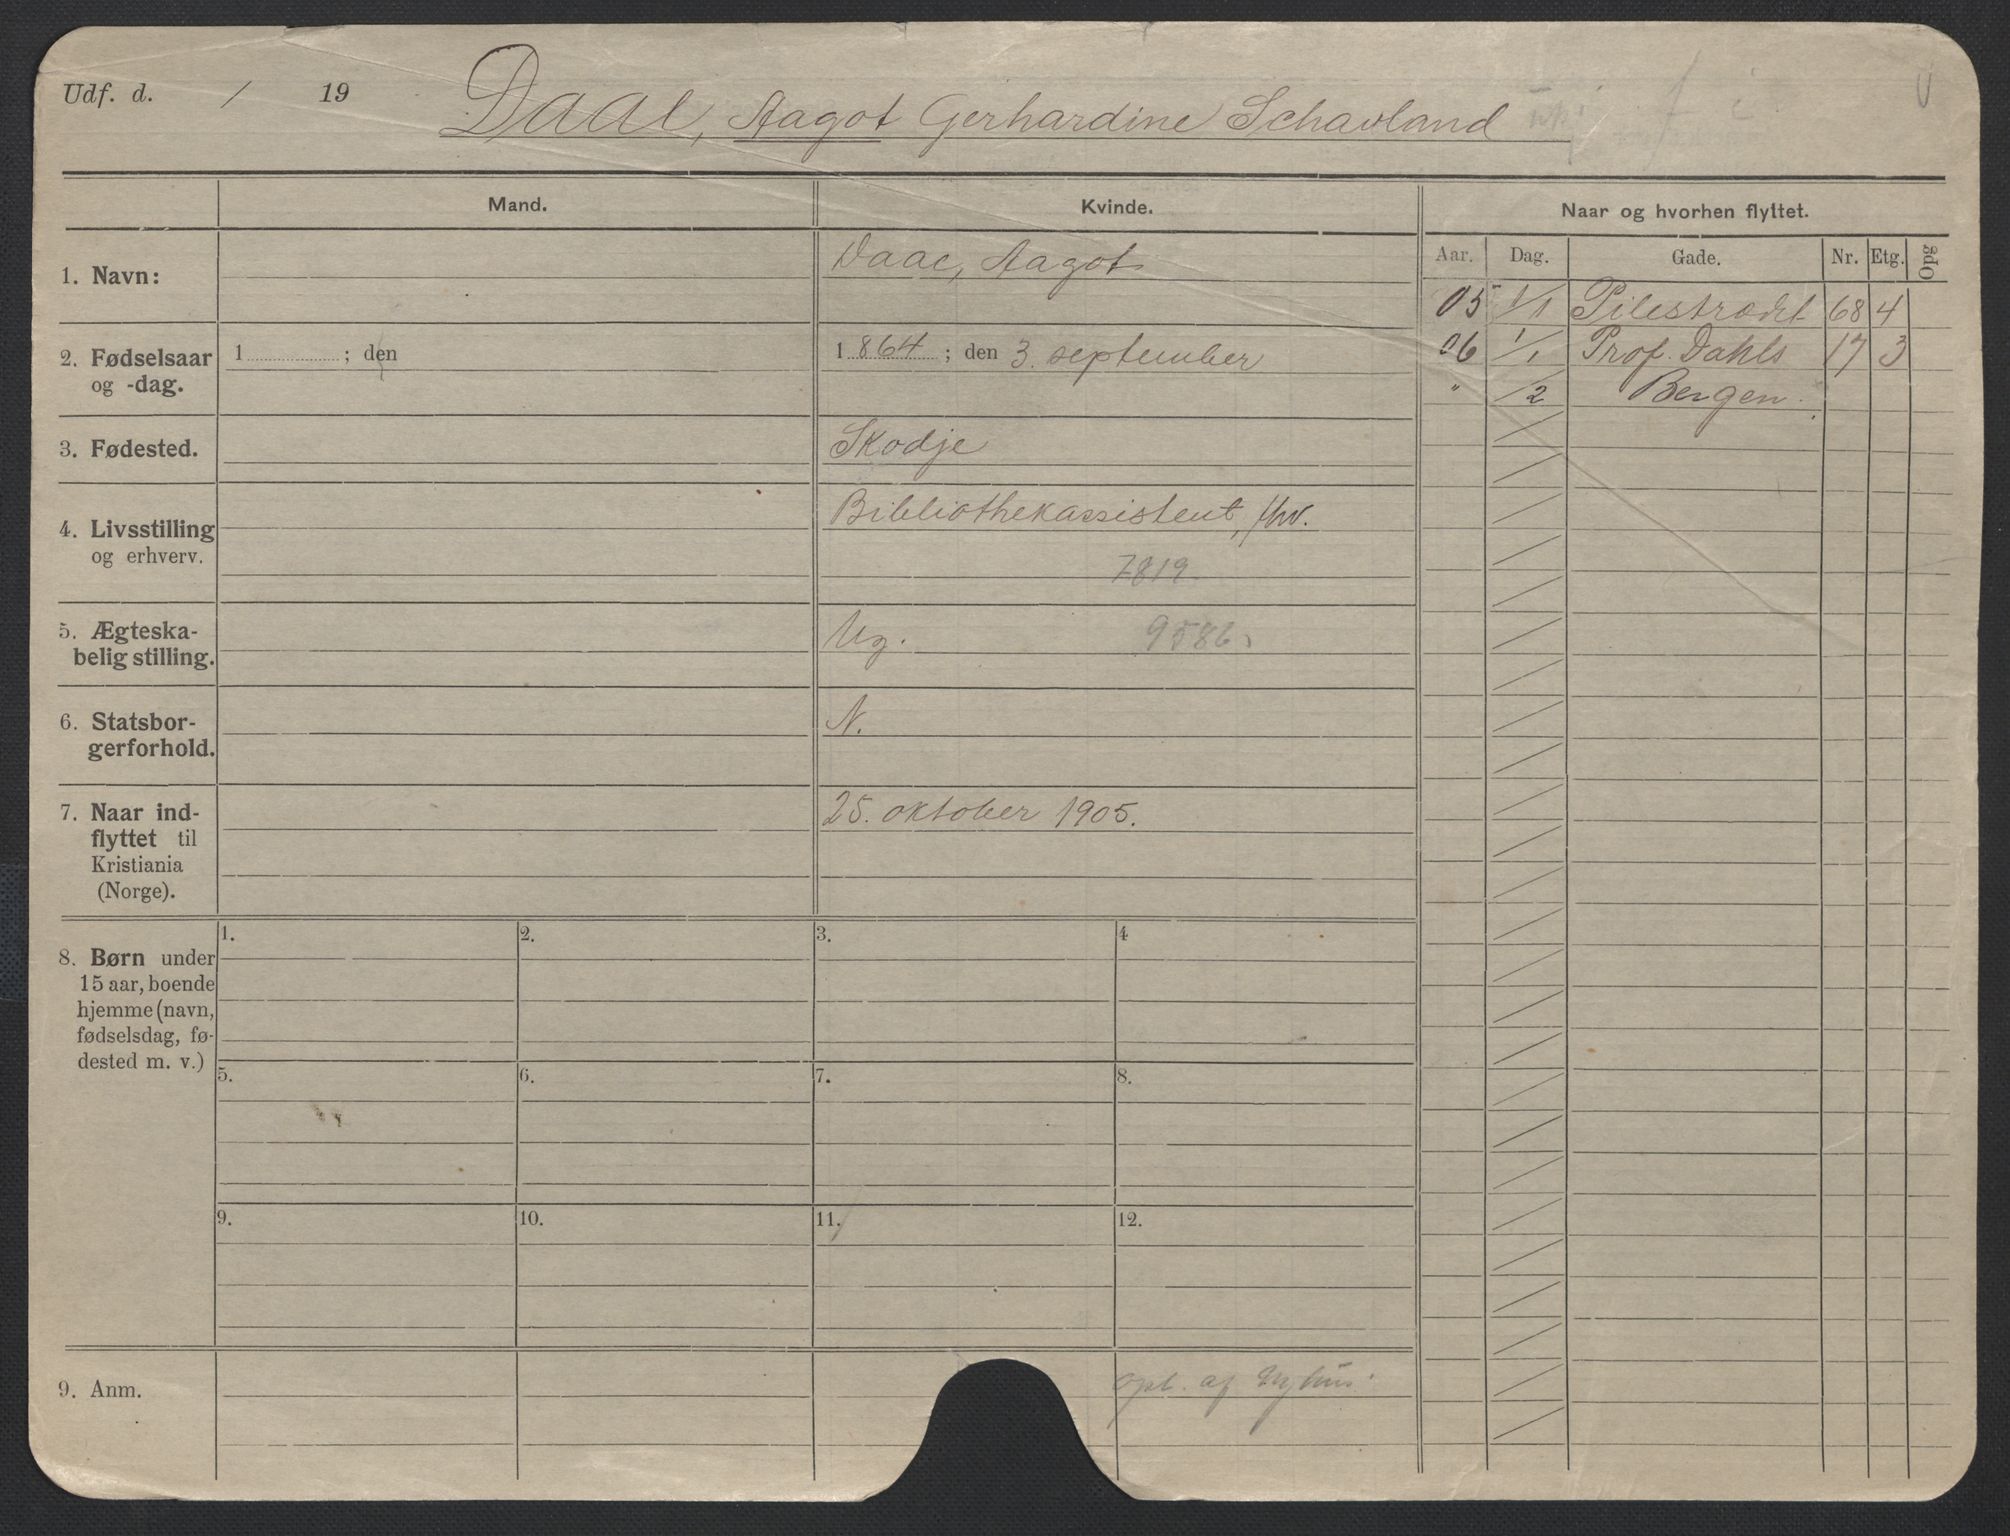 Udf. d. / 19
Daae, Aagot Gerhardine Schavland
Mand.
Kvinde.
Naar og hvorhen flyttet.
Aar. Dag. Gade. Nr. Etg. Opg
1. Navn:
Daae, Aagot
05 1/1 Pilestrædet 68 4
06 1/1 Prof. Dahls 17 3
" /2 Bergen.
2. Fødselsaar
og -dag.
1 ; den
1 864 ; den 3. september
3. Fødested.
Skodje
4. Livsstilling
og erhverv.
Bibliothekassistent, /hv.
7819.
5. Ægteska-
belig stilling.
Ug. 9586
6. Statsbor-
gerforhold.
N.
7. Naar ind-
flyttet til
Kristiania
(Norge).
25. oktober 1905.
8. Børn under
15 aar, boende
hjemme (navn,
fødselsdag, fø-
dested m. v.)
1. 2. 3. 4
5. 6. 7. 8.
9. 10. 11. 12.
9. Anm.
opl. af Nyhus.